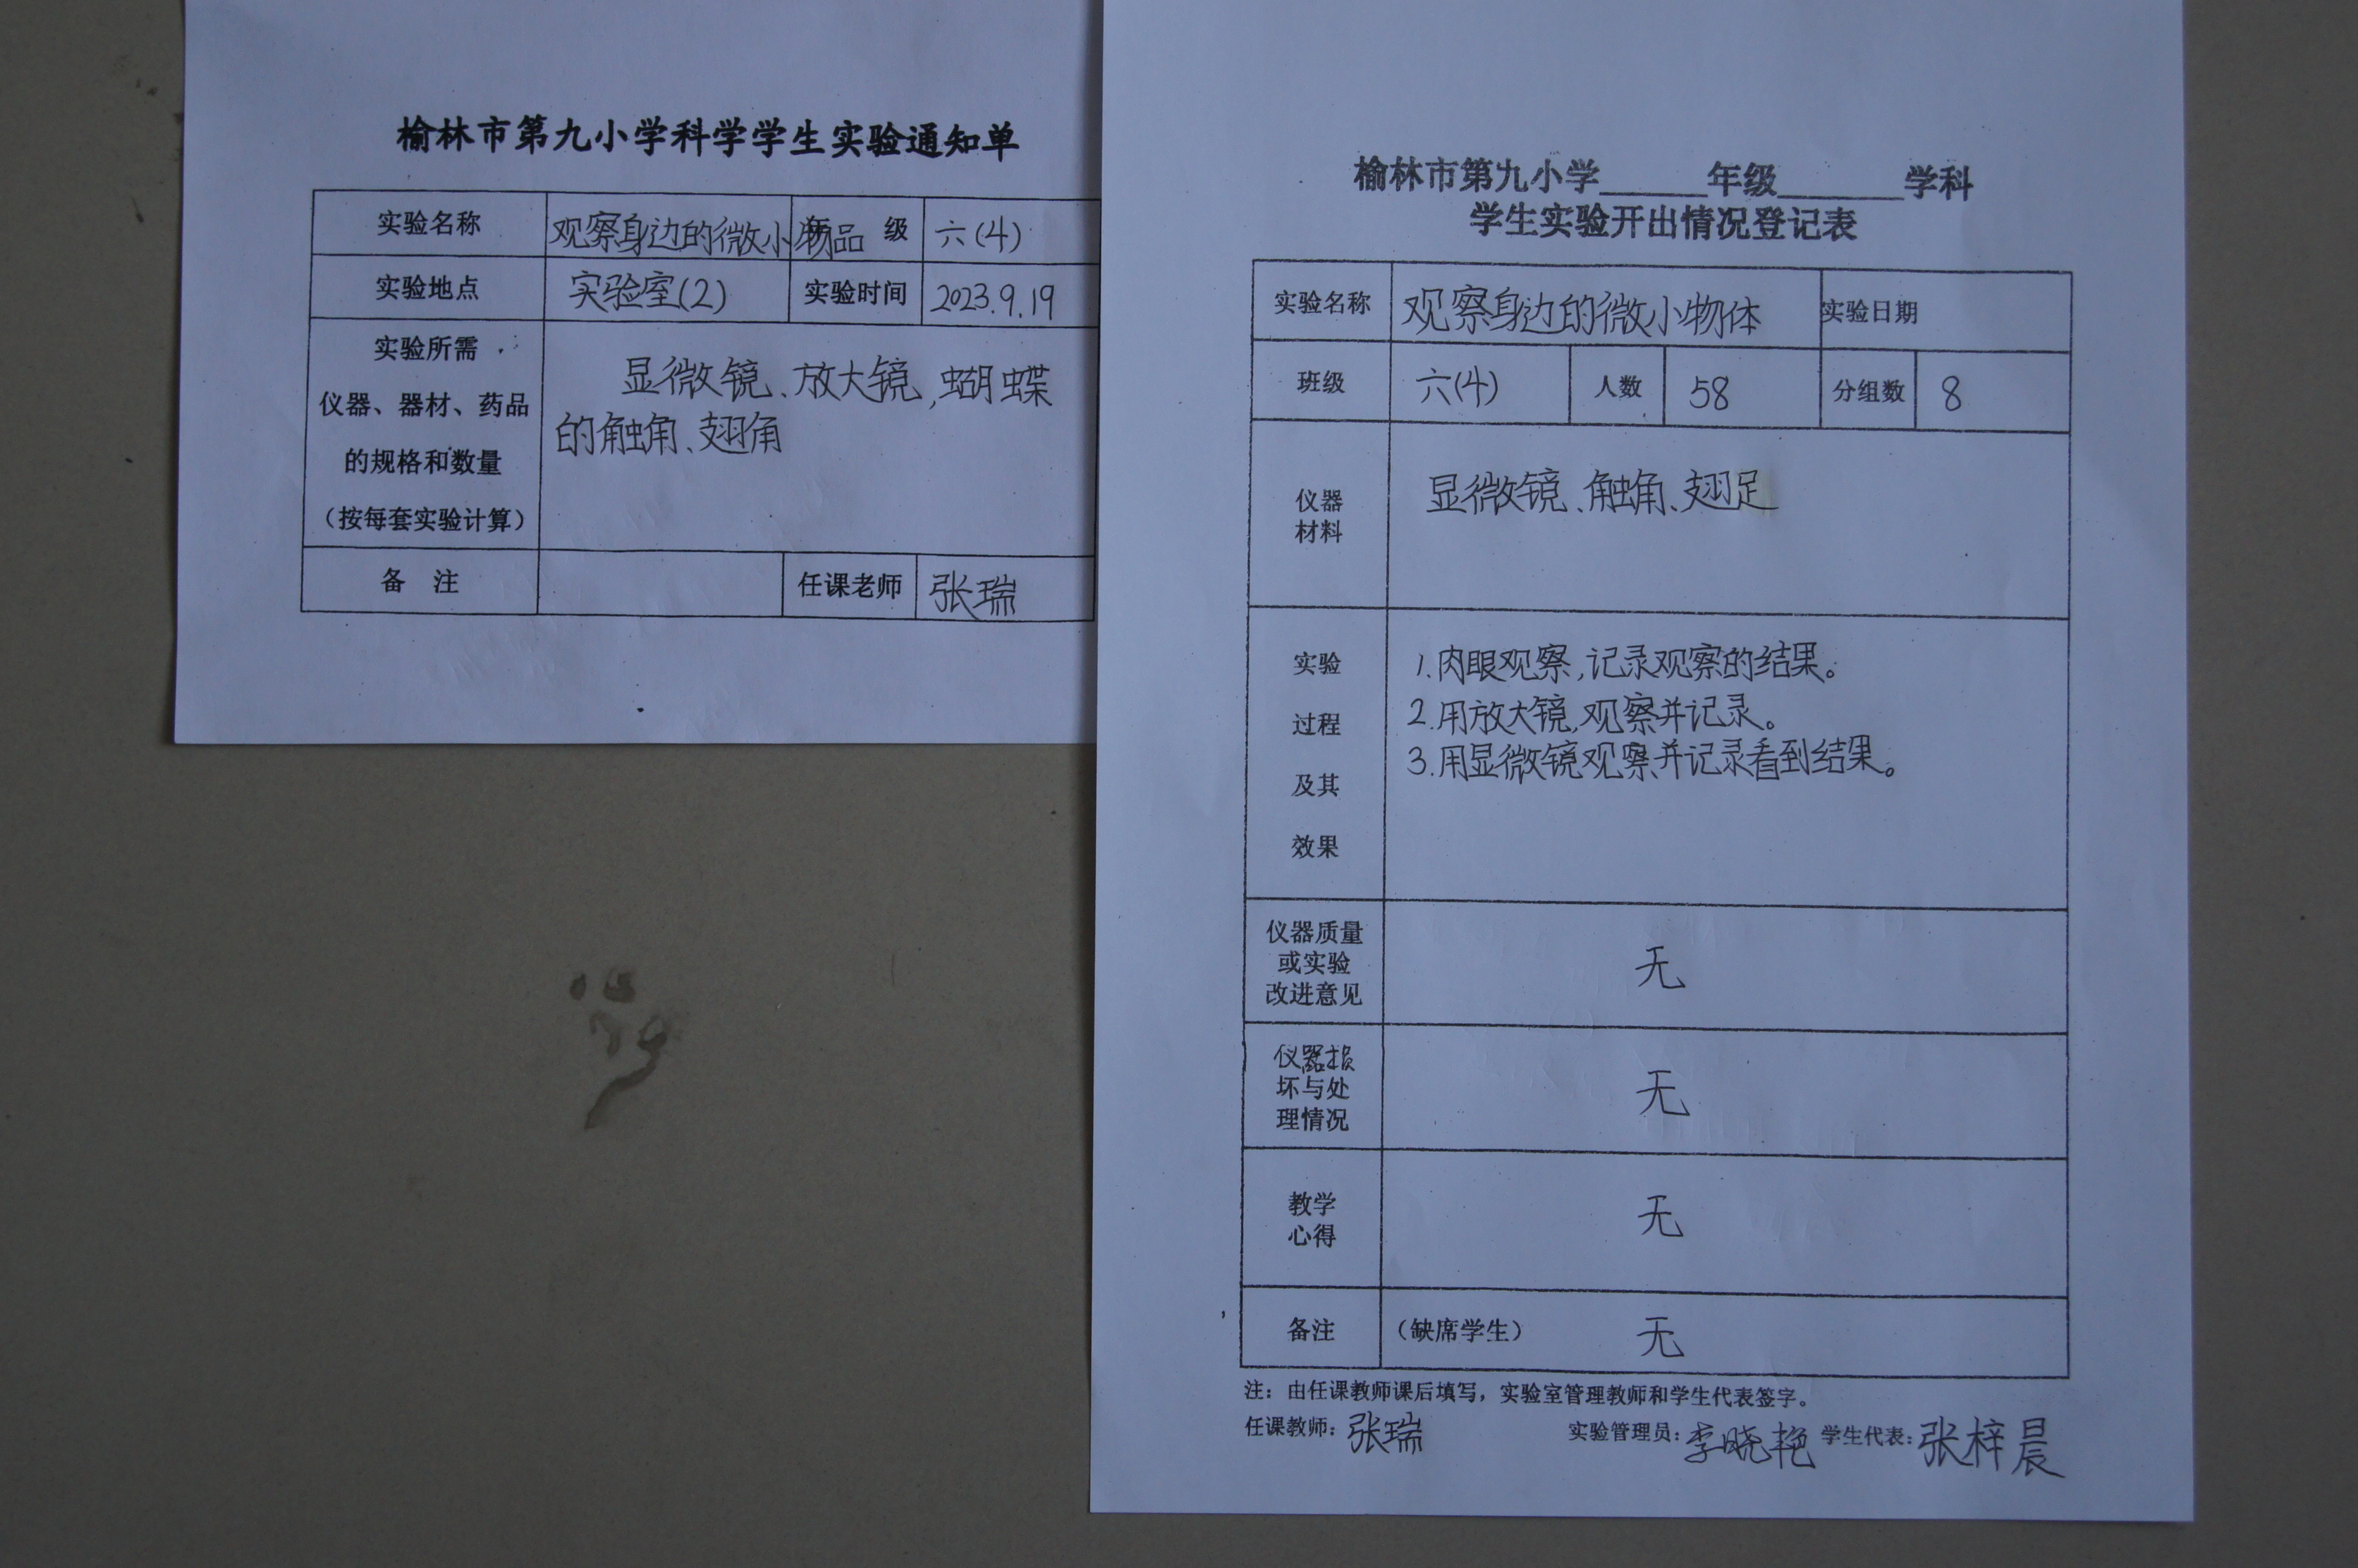 榆林市第九小学科学学生实验通知单
实验名称 观察身边的微小物品 级 六(4)
实验地点 实验室(2) 实验时间 2023.9.19
实验所需
仪器、器材、药品
的规格和数量
(按每套实验计算)
显微镜、放大镜,蝴蝶
的触角、翅角
备 注 任课老师 张瑞
榆林市第九小学______年级_______学科
学生实验开出情况登记表
实验名称 观察身边的微小物体 实验日期
班级 六(4) 人数 58 分组数 8
仪器
材料
显微镜、触角、翅足
实验
过程
及其
效果
1.肉眼观察,记录观察的结果。
2.用放大镜,观察并记录。
3.用显微镜观察并记录看到结果。
仪器质量
或实验
改进意见
无
仪器损
坏与处
理情况
无
教学
心得
无
备注 (缺席学生) 无
注:由任课教师课后填写,实验室管理教师和学生代表签字。
任课教师:张瑞 实验管理员:李晓艳 学生代表:张梓晨